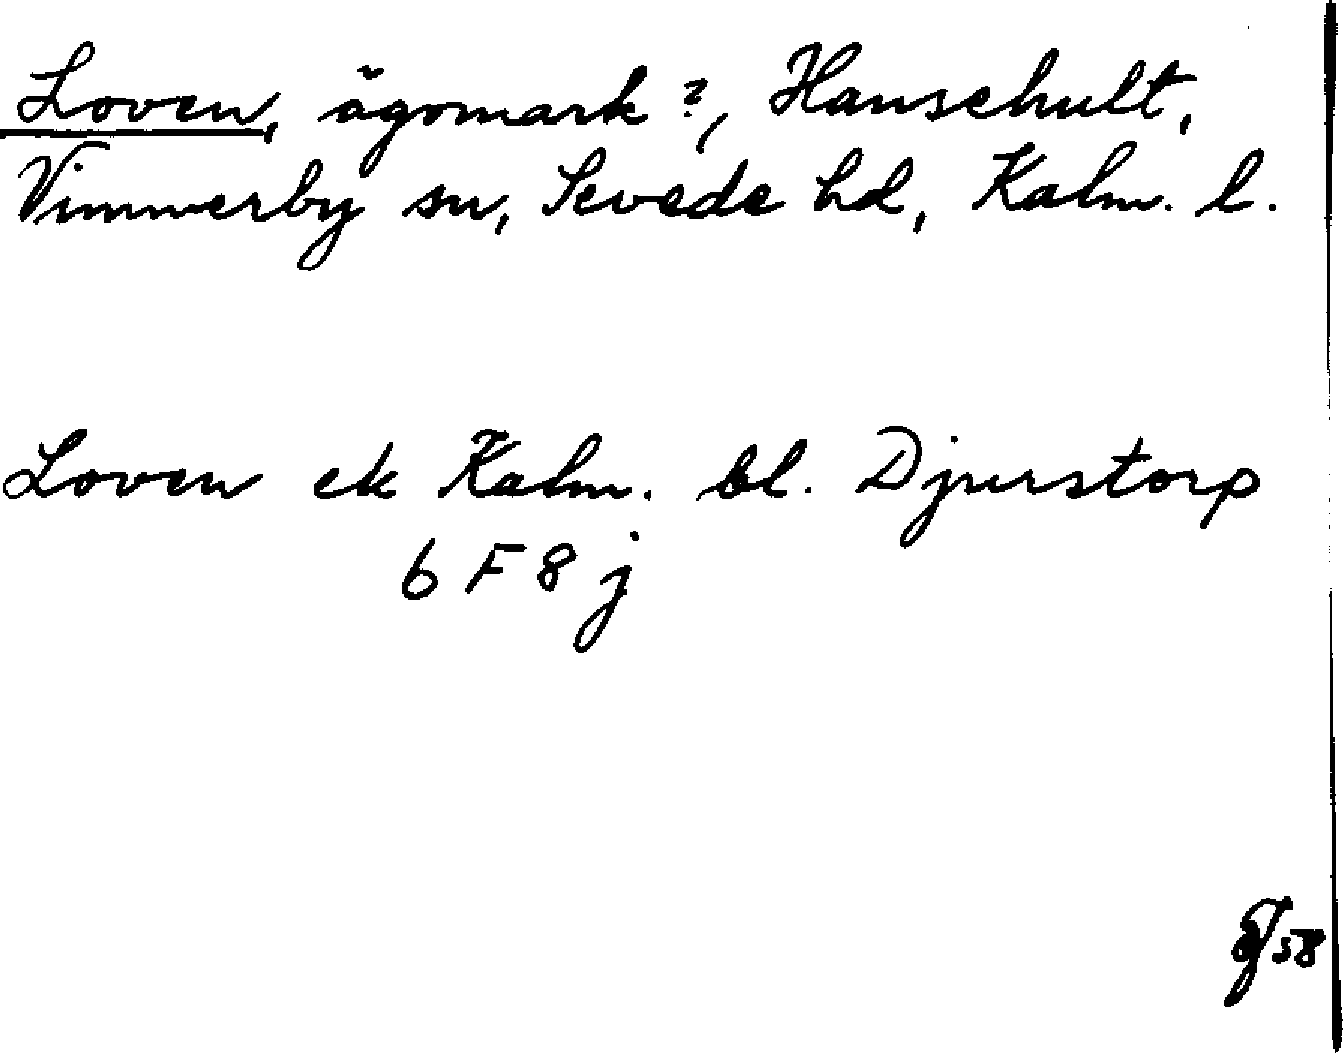 Loven, ägomark ?, Hansehult,
Vimmerby sn, Sevede hd, Kalm. l.
Loven ek Kalm. bl. Djurstorp
6 F 8 j
58